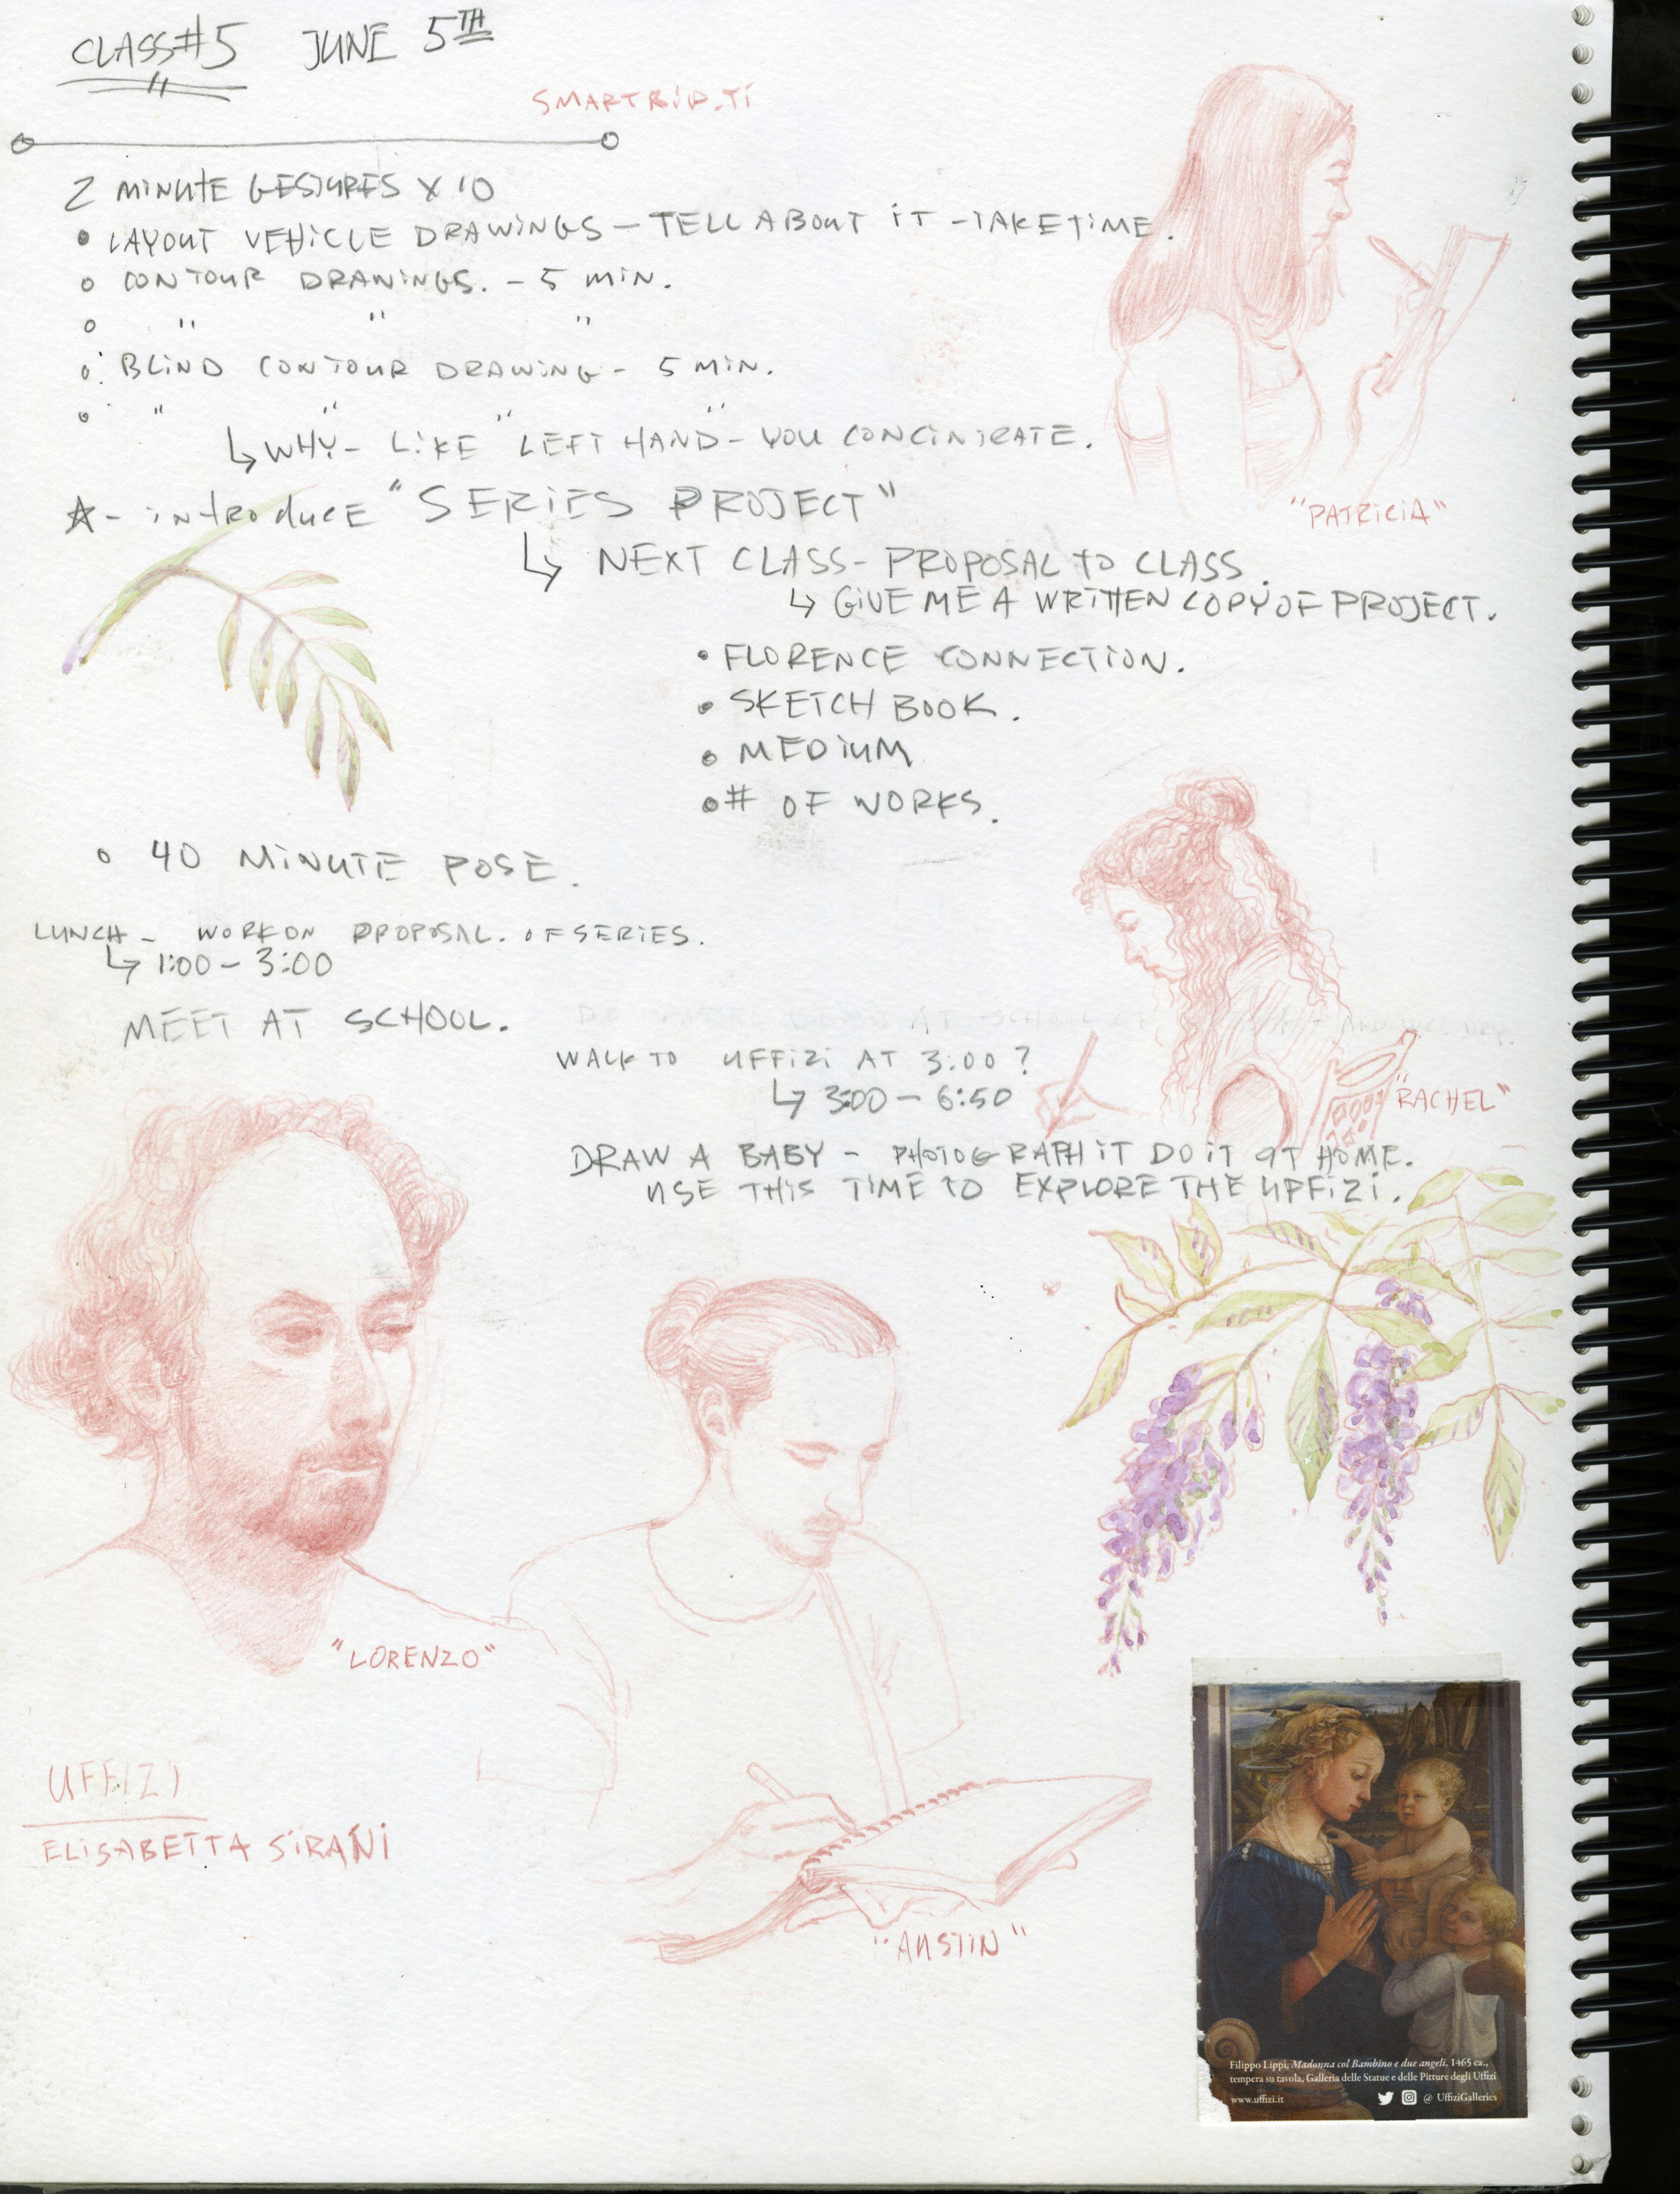 CLASS #5 JUNE 5TH
2 MINUTE GESTURES X 10
• LAYOUT VEHICLE DRAWINGS – TELL ABOUT IT – TAKE TIME.
o CONTOUR DRAWINGS. – 5 MIN.
o " " "
o BLIND CONTOUR DRAWING – 5 MIN.
o " " " "
↳ WHY – LIKE "LEFT HAND" – YOU CONCINTRATE.
☆ – introduce "SERIES PROJECT"
↳ NEXT CLASS – PROPOSAL to CLASS.
↳ GIVE ME A WRITTEN COPY OF PROJECT.
• FLORENCE CONNECTION.
• SKETCH BOOK.
• MEDIUM
• # OF WORKS.
"PATRICIA"
o 40 MINUTE POSE.
LUNCH – WORK ON PROPOSAL. OF SERIES.
↳ 1:00 – 3:00
MEET AT SCHOOL.
AT SCHOOL
WALK TO UFFIZI AT 3:00?
↳ 3:00 – 6:50
"RACHEL"
DRAW A BABY – PHOTOGRAPH IT DO IT AT HOME.
USE THIS TIME TO EXPLORE THE UFFIZI.
"LORENZO"
UFFIZI
ELISABETTA SIRANI
"AUSTIN"
Filippo Lippi, Madonna col Bambino e due angeli, 1465 ca.,
tempera su tavola, Galleria delle Statue e delle Pitture degli Uffizi
www.uffizi.it @ UffiziGalleries